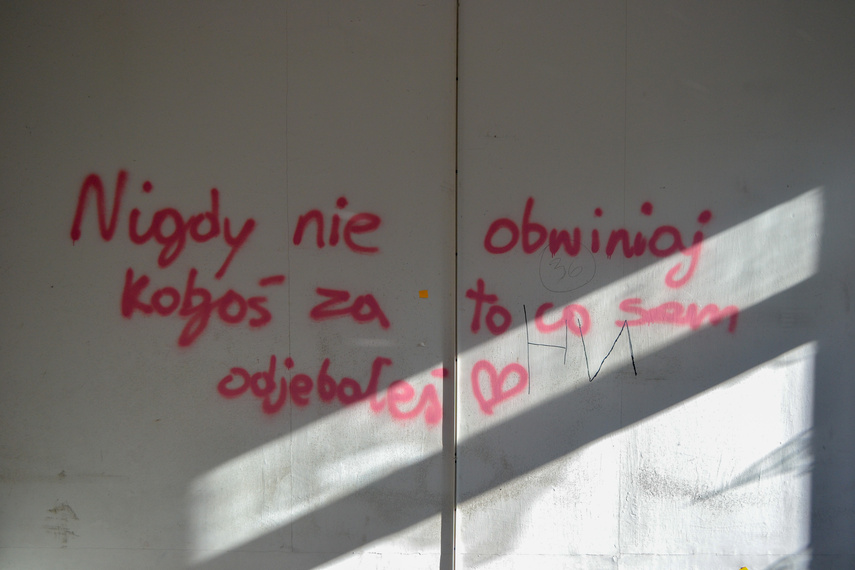 Nigdy nie obwiniaj
kogoś za to co sam
odjebałeś
36
HN